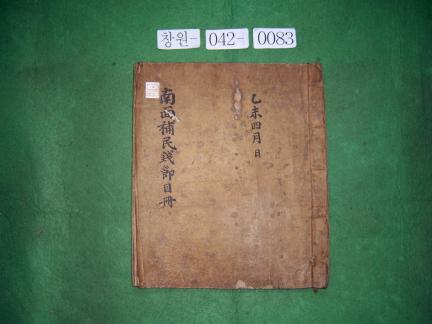 창원-
042-
0083
乙未四月 日
南面補民錢節目冊